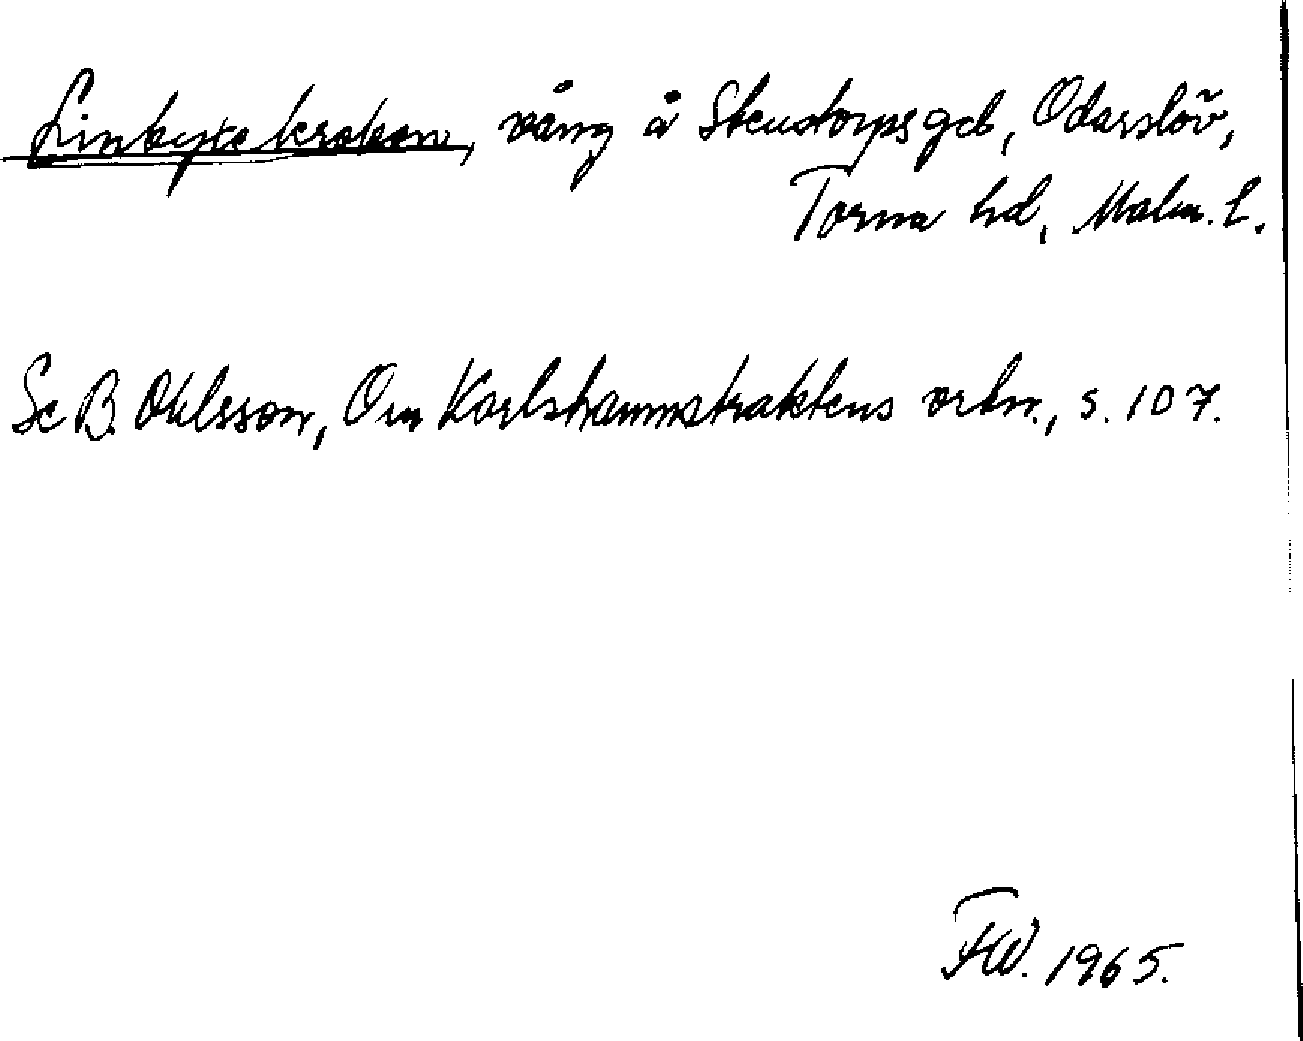 Linbytekroken, vång å Stenstorps geb, Odarslöv,
Torna hd, Malm. l.
Se B. Ohlsson, Om Karlshamnstraktens ortn., s. 107.
FW. 1965.